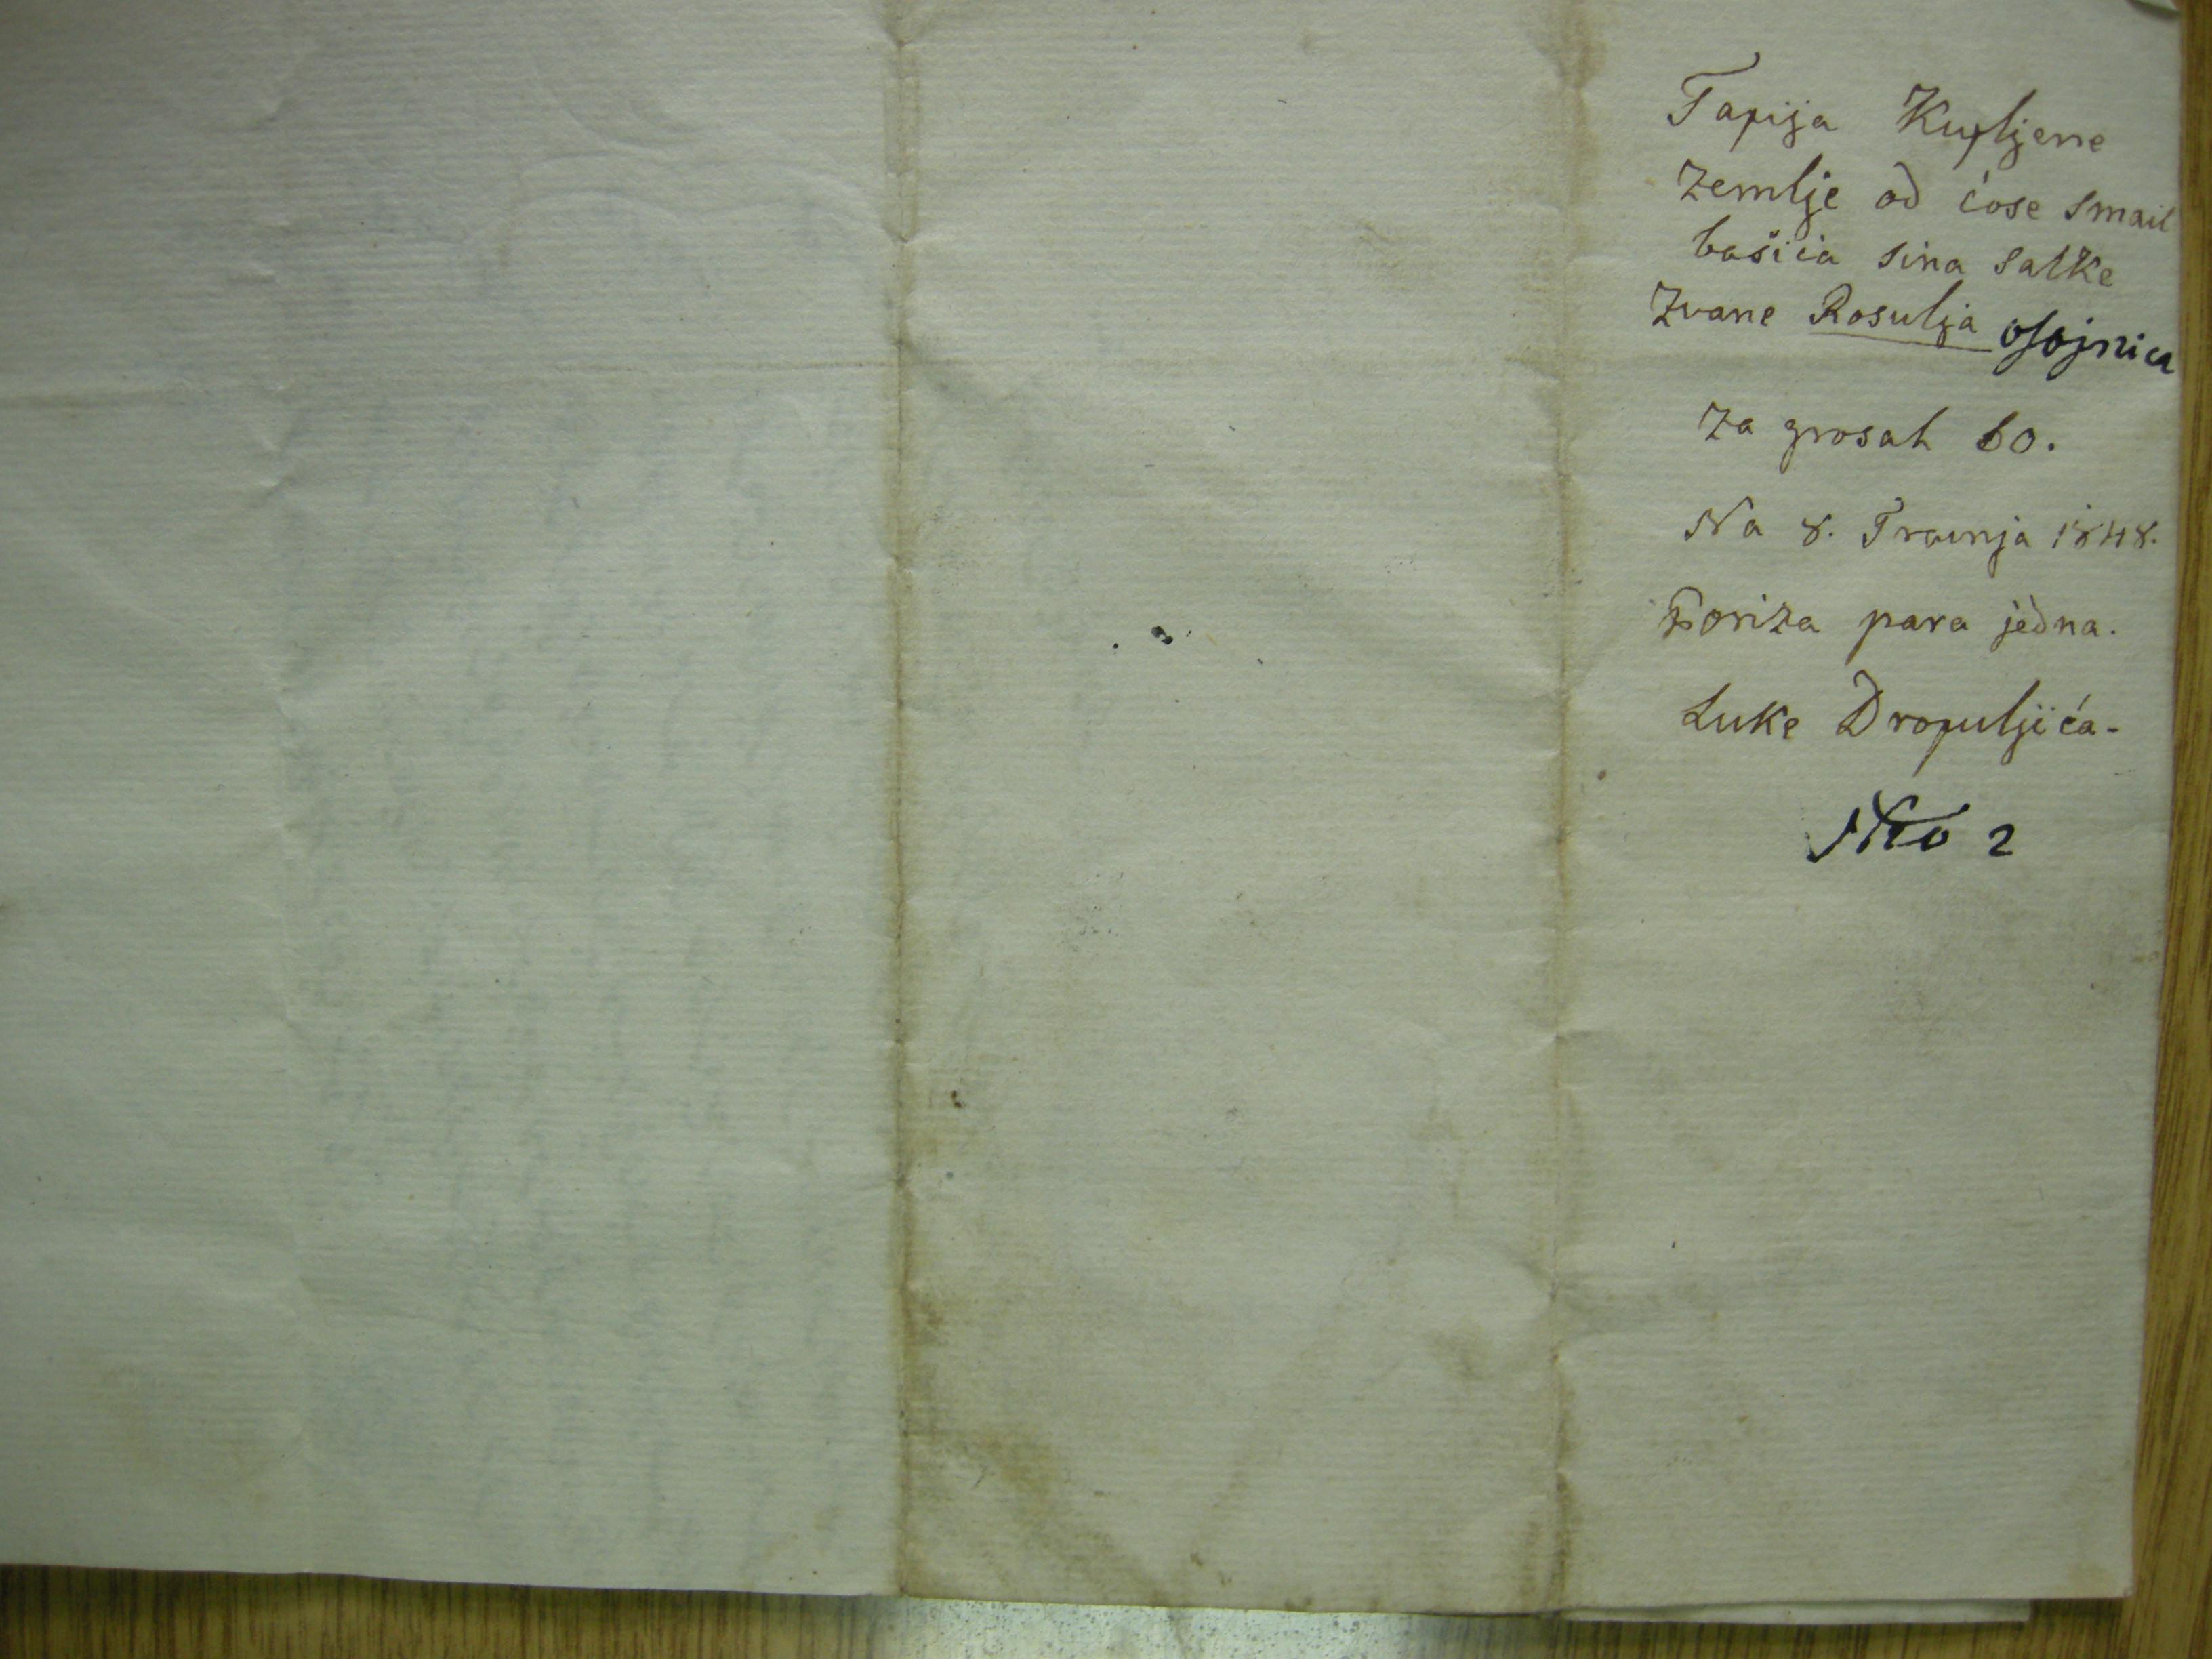 Tapija Kupljene
Zemlje od ćose Smail
bašića sina Salke
Zvane Rosulja osojnica
Za grosah 60.
Na 8. Travnja 1848.
Poriza para jedna.
Luke Dropuljića-
Nro 2